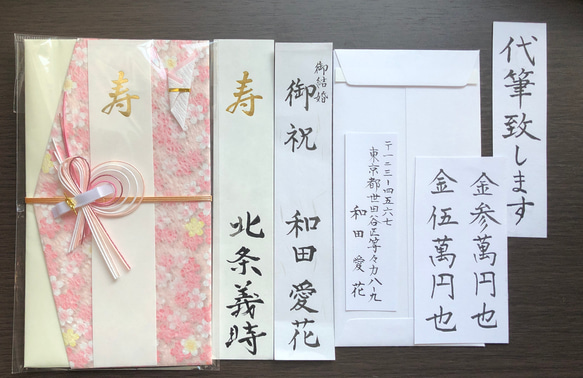 寿
寿
北条義時
御結婚
御祝
和田愛花
〒一二三-四五六七
東京都世田谷区等々力八-九
和田愛花
金参萬円也
金伍萬円也
代筆致します